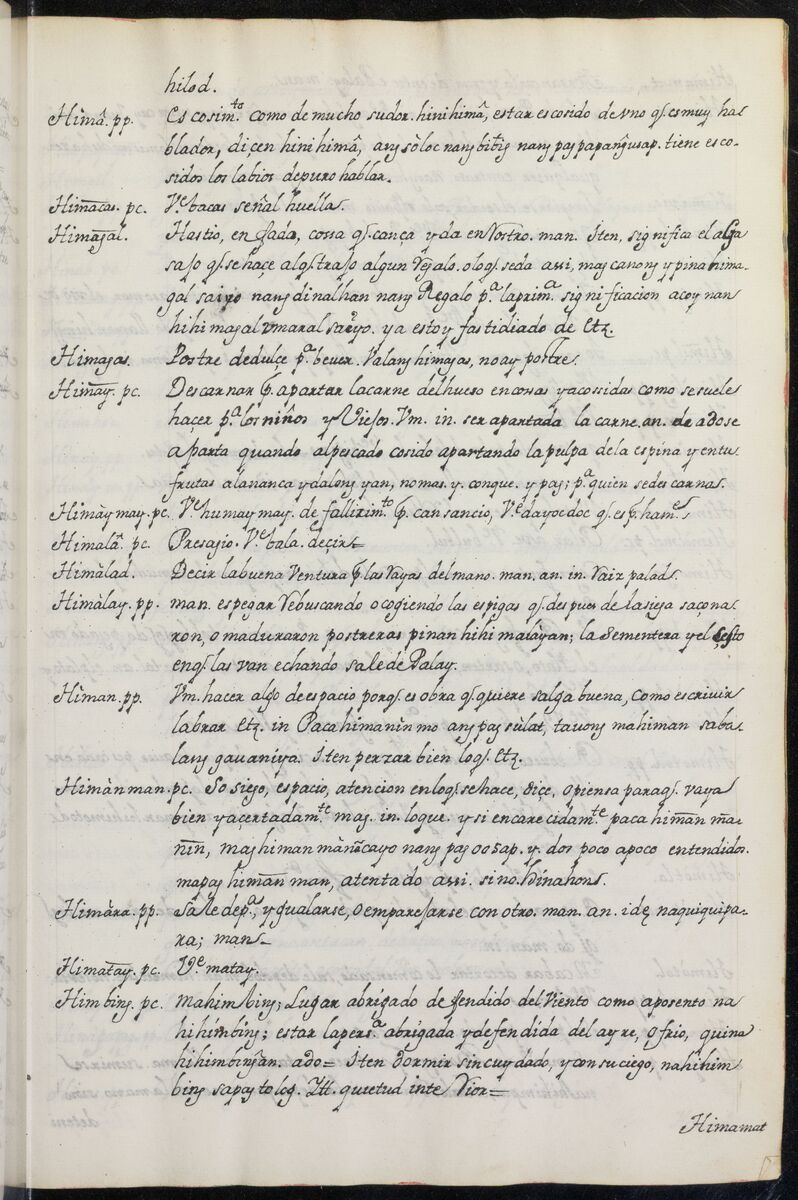 hilod.
Himâ. pp. Es cosim.to como de mucho sudor. hinihimâ, estar escosido de vno q̃. es muy ha-
blador, diçen hinihimâ, ang sòloc nang bitig nang pag papangusap. tiene esco-
sidos los labios de puro hablar.
Himacas. pc. V.e bacas señal huella.
Himagal. Hastio, enfado, cossa q̃. cança y da en Rostro. man. Iten, significa el aga
sajo q̃. se haçe al q̃. trajo algun Regalo. o lo q̃. se da assi, mag canong y pinahima-
gal sa iyo nang dinalhan nang Regalo p.a la prim.a significacion acoy nan
hihimagal vmaral sa iyo. ya estoy fastidiado de Etz.
Himagas. Postre de dulce p.a bever. Valang himagas, no ay postre.
Himay. pc. Descarnar l. apartar la carne del hueso en cosas ya cossidas como se suele
hacer p.a los niños y Viejos. Vm. in. ser apartada la carne. an. de a do se
aparta quando al pescado cosido apartando la pulpa de la espina y en tu
frutas a la nanca y dalong yan, no mas. y. con que. y pag; p.a quien se descarnas.
Himàymay. pc. V.e humaymay. de fallicim.to l. cansancio, V.e dayocdoc q̃. es l. ham.e
Himalâ. pc. Presagio. V.e bala. deçir=
Himàlad. Decir la buena Ventura l. las Rayas del mano. man. an. in. Raiz palad.
Himàlay. pp. man. espegar Rebuscando o cogiendo las espigas q̃. despues de la siega saçona-
ron, o maduraron postreras pinanhihimalàyan; la Sementera y el çesto
en q̃. las van echando sale de Palay.
Himan. pp. Vm. hacer algo de espacio por q̃. es obra q̃. quiere salga buena, como escrivir
labrar Etz. in Paca himanin mo ang pag sùlat, tavong mahiman saba-
lang gavaniya. Iten perzar bien lo q̃. Etz.
Himànman. pc. Sosiego, espacio, atencion en lo q̃. se hace, diçe, o piensa para q̃. vaya
bien y açertadam.te mag. in. lo que. y si encarecidam.te paca himan ma-
nin, mag himan màn cayo nang pag oosap. y. dos poco apoco entendidos.
mapag himan man, atentado assi. sino. hinahong.
Himàra. pp. Sale de p.a, y gualarse, o emparejarse con otro. man. an. idẽ naquiquipa-
ra; man=
Himatay. pc. V.e matay.
Himbing. pc. Mahimbing; Lugar abrigado defendido del Viento como aposento na
hihimbing; estar la pers.a abrigada y defendida del ayre, o frio, quina
hihimbingan. ado= Iten dormir sin cuydado, y con suciego, nahihim
bing sa pag tolog. Itt. quietud inte Rior=
Himamat